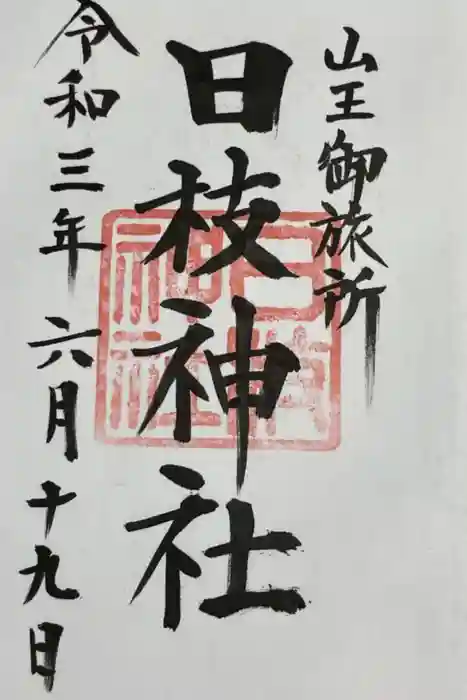 山王御旅所
日枝神社
令和三年六月十九日
日枝神社